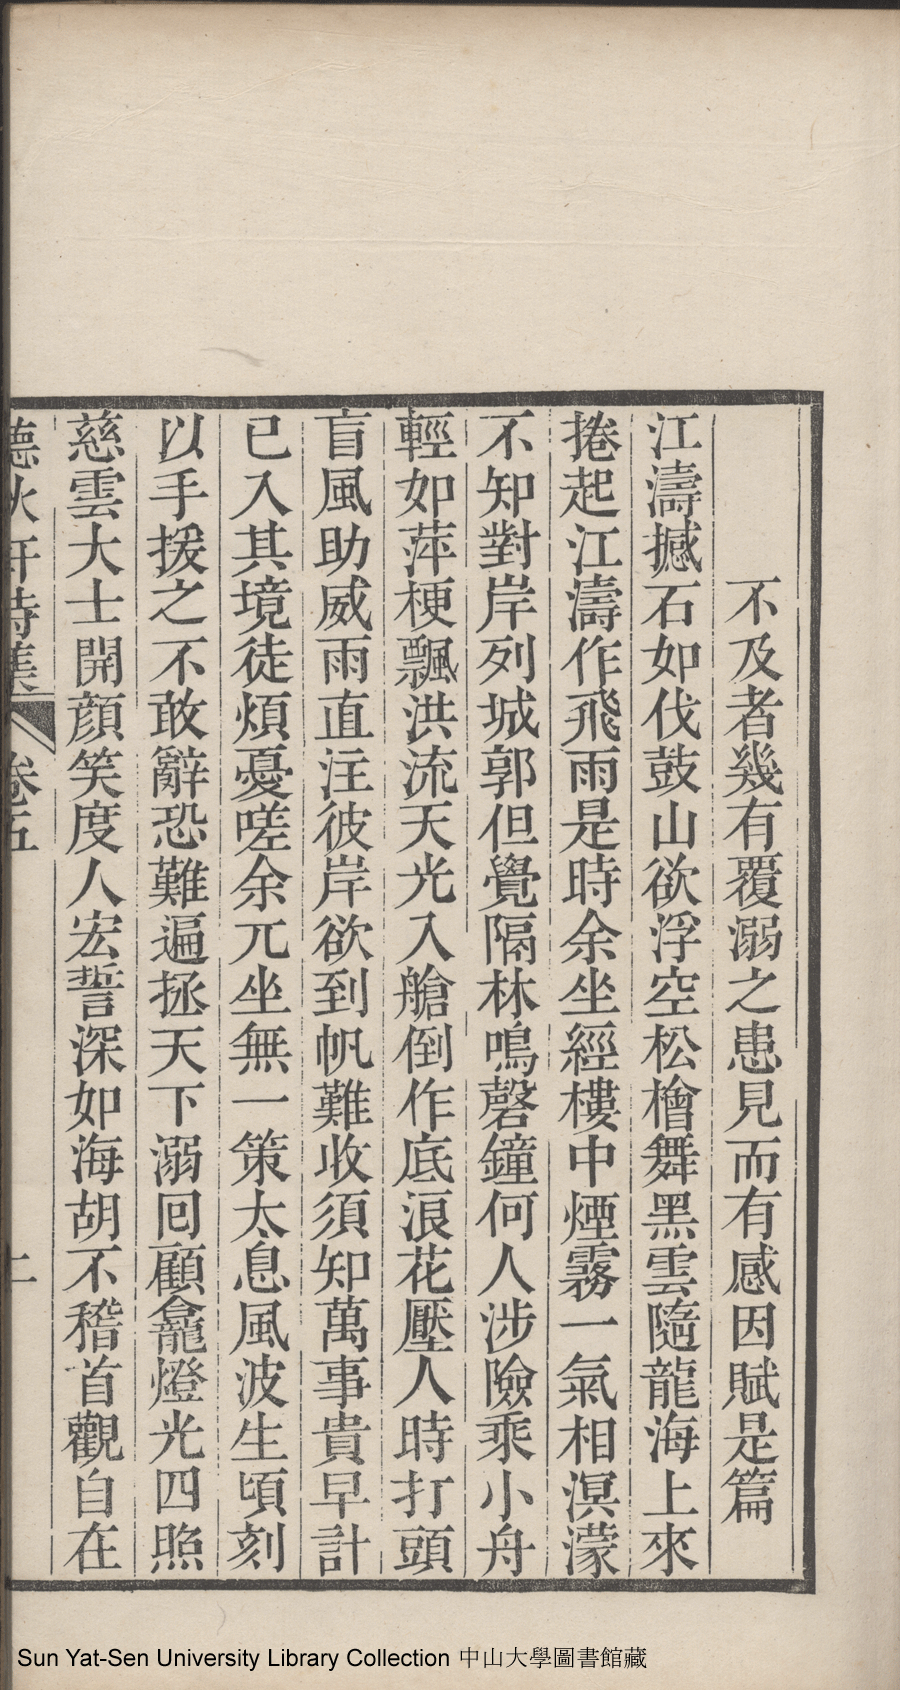 不及者幾有覆溺之患見而有感因賦是篇
江濤撼石如伐鼓山欲浮空松檜舞黑雲隨龍海上來
捲起江濤作飛雨是時余坐經樓中煙霧一氣相溟濛
不知對岸列城郭但覺隔林鳴磬鐘何人涉險乘小舟
輕如萍梗飄洪流天光入艙倒作底浪花壓人時打頭
盲風助威雨直注彼岸欲到帆難收須知萬事貴早計
已入其境徒煩憂嗟余兀坐無一策太息風波生頃刻
以手援之不敢辭恐難遍拯天下溺回顧龕燈光四照
慈雲大士開顔笑度人宏誓深如海胡不稽首觀自在
聽秋軒詩集 卷五
Sun Yat-Sen University Library Collection 中山大學圖書館藏